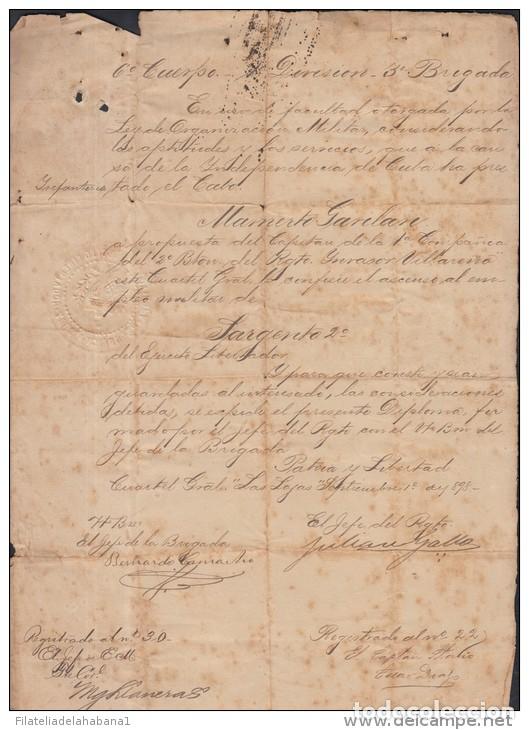 6º Cuerpo - División - 3ª Brigada
En uso de facultad otorgada por la
Ley de Organización Militar, considerando
las aptitudes y los servicios, que a la cau
sa de la Independencia de Cuba ha pres
Infantería tado, el Cabo
Mamerto
a propuesta del Capitan de la 1ª Compañia
del 2º Bton. del Rgto. Invasor Villareño
este Cuartel Gral. le confiere el ascenso al em
pleo militar de
Sargento 2º
del Ejercito Libertador
Y para que conste y sean
guardadas al interesado, las consideraciones
debidas, se expide el presente Diploma, fir
mado por el Jefe del Rgto con el Vº Bno del
Jefe de la Brigada
Patria y Libertad
Cuartel Gral. "Las Lajas" Septiembre 1º de 1898-
Vº Bno
El Jefe del Rgto
El Jefe de la Brigada
Julian Gallo
Bernardo Camacho
Registrado al nº 30-
El Jefe de E. M.
Registrado al nº 22
El Capitan
FilateliadelaHabana1
todocoleccion.net